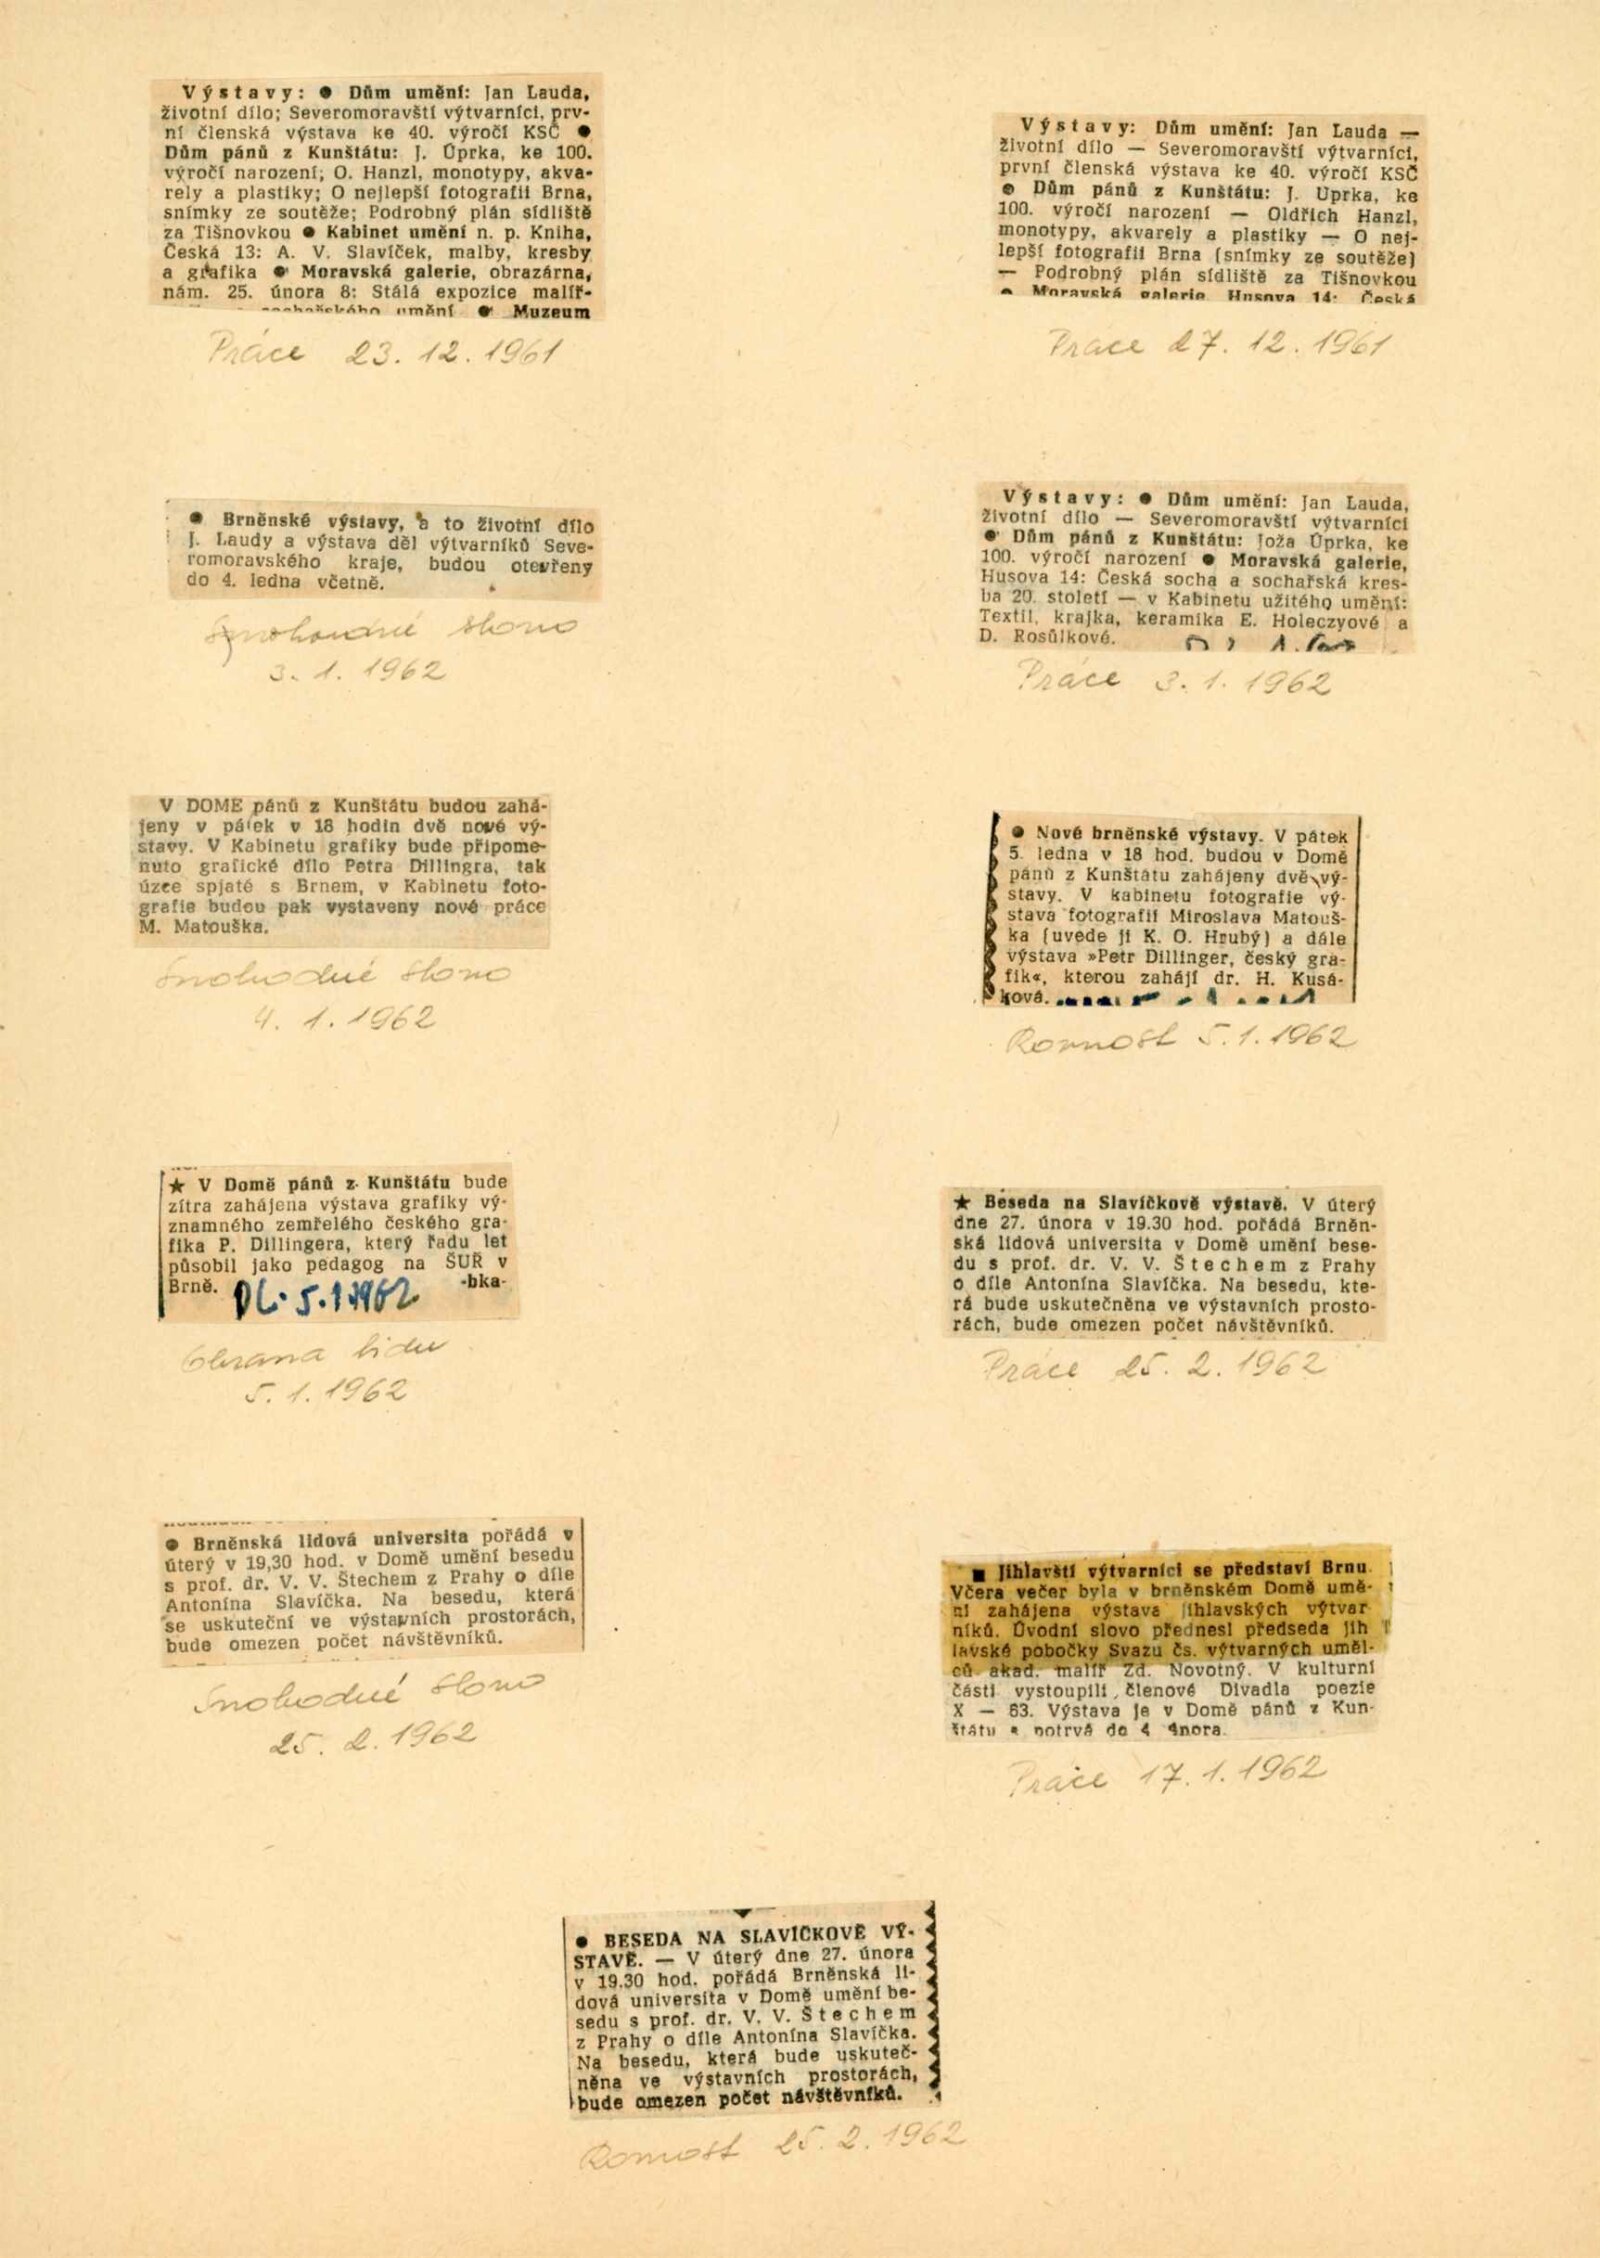 Výstavy: ● Dům umění: Jan Lauda,
životní dílo; Severomoravští výtvarníci, prv-
ní členská výstava ke 40. výročí KSČ ●
Dům pánů z Kunštátu: J. Úprka, ke 100.
výročí narození; O. Hanzl, monotypy, akva-
rely a plastiky; O nejlepší fotografii Brna,
snímky ze soutěže; Podrobný plán sídliště
za Tišnovkou ● Kabinet umění n. p. Kniha,
Česká 13: A. V. Slavíček, malby, kresby
a grafika ● Moravská galerie, obrazárna,
nám. 25. února 8: Stálá expozice malíř-
sochařského umění ● Muzeum
Práce 23. 12. 1961
Výstavy: Dům umění: Jan Lauda —
životní dílo — Severomoravští výtvarníci,
první členská výstava ke 40. výročí KSČ
● Dům pánů z Kunštátu: J. Uprka, ke
100. výročí narození — Oldřich Hanzl,
monotypy, akvarely a plastiky — O nej-
lepší fotografii Brna (snímky ze soutěže)
— Podrobný plán sídliště za Tišnovkou
● Moravská galerie, Husova 14: Česká
Práce 27. 12. 1961
● Brněnské výstavy, a to životní dílo
J. Laudy a výstava děl výtvarníků Seve-
romoravského kraje, budou otevřeny
do 4. ledna včetně.
Svobodné slovo
3. 1. 1962
Výstavy: ● Dům umění: Jan Lauda,
životní dílo — Severomoravští výtvarníci
● Dům pánů z Kunštátu: Joža Úprka, ke
100. výročí narození ● Moravská galerie,
Husova 14: Česká socha a sochařská kres-
ba 20. století — v Kabinetu užitého umění:
Textil, krajka, keramika E. Holeczyové a
D. Rosůlkové.
Práce 3. 1. 1962
V DOME pánů z Kunštátu budou zahá-
jeny v pátek v 18 hodin dvě nové vý-
stavy. V Kabinetu grafiky bude připome-
nuto grafické dílo Petra Dillingra, tak
úzce spjaté s Brnem, v Kabinetu foto-
grafie budou pak vystaveny nové práce
M. Matouška.
Svobodné slovo
4. 1. 1962
● Nové brněnské výstavy. V pátek
5. ledna v 18 hod. budou v Domě
pánů z Kunštátu zahájeny dvě vý-
stavy. V kabinetu fotografie vý-
stava fotografií Miroslava Matouš-
ka (uvede ji K. O. Hrubý) a dále
výstava »Petr Dillinger, český gra-
fik«, kterou zahájí dr. H. Kusá-
ková.
Rovnost 5. 1. 1962
★ V Domě pánů z Kunštátu bude
zítra zahájena výstava grafiky vý-
znamného zemřelého českého gra-
fika P. Dillingera, který řadu let
působil jako pedagog na ŠUŘ v
Brně. -bka-
OL. 5.1.1962
Obrana lidu
5. 1. 1962
★ Beseda na Slavíčkově výstavě. V úterý
dne 27. února v 19.30 hod. pořádá Brněn-
ská lidová universita v Domě umění bese-
du s prof. dr. V. V. Štechem z Prahy
o díle Antonína Slavíčka. Na besedu, kte-
rá bude uskutečněna ve výstavních prosto-
rách, bude omezen počet návštěvníků.
Práce 25. 2. 1962
● Brněnská lidová universita pořádá v
úterý v 19,30 hod. v Domě umění besedu
s prof. dr. V. V. Štechem z Prahy o díle
Antonína Slavíčka. Na besedu, která
se uskuteční ve výstavních prostorách,
bude omezen počet návštěvníků.
Svobodné slovo
25. 2. 1962
■ Jihlavští výtvarníci se představí Brnu.
Včera večer byla v brněnském Domě umě-
ní zahájena výstava jihlavských výtvar
níků. Úvodní slovo přednesl předseda jih
lavské pobočky Svazu čs. výtvarných uměl-
ců akad. malíř Zd. Novotný. V kulturní
části vystoupili členové Divadla poezie
X — 63. Výstava je v Domě pánů z Kun-
štátu a potrvá do 4 února.
Práce 17. 1. 1962
● BESEDA NA SLAVÍČKOVĚ VÝ-
STAVĚ. — V úterý dne 27. února
v 19.30 hod. pořádá Brněnská li-
dová universita v Domě umění be-
sedu s prof. dr. V. V. Štechem
z Prahy o díle Antonína Slavíčka.
Na besedu, která bude uskuteč-
něna ve výstavních prostorách,
bude omezen počet návštěvníků.
Rovnost 25. 2. 1962